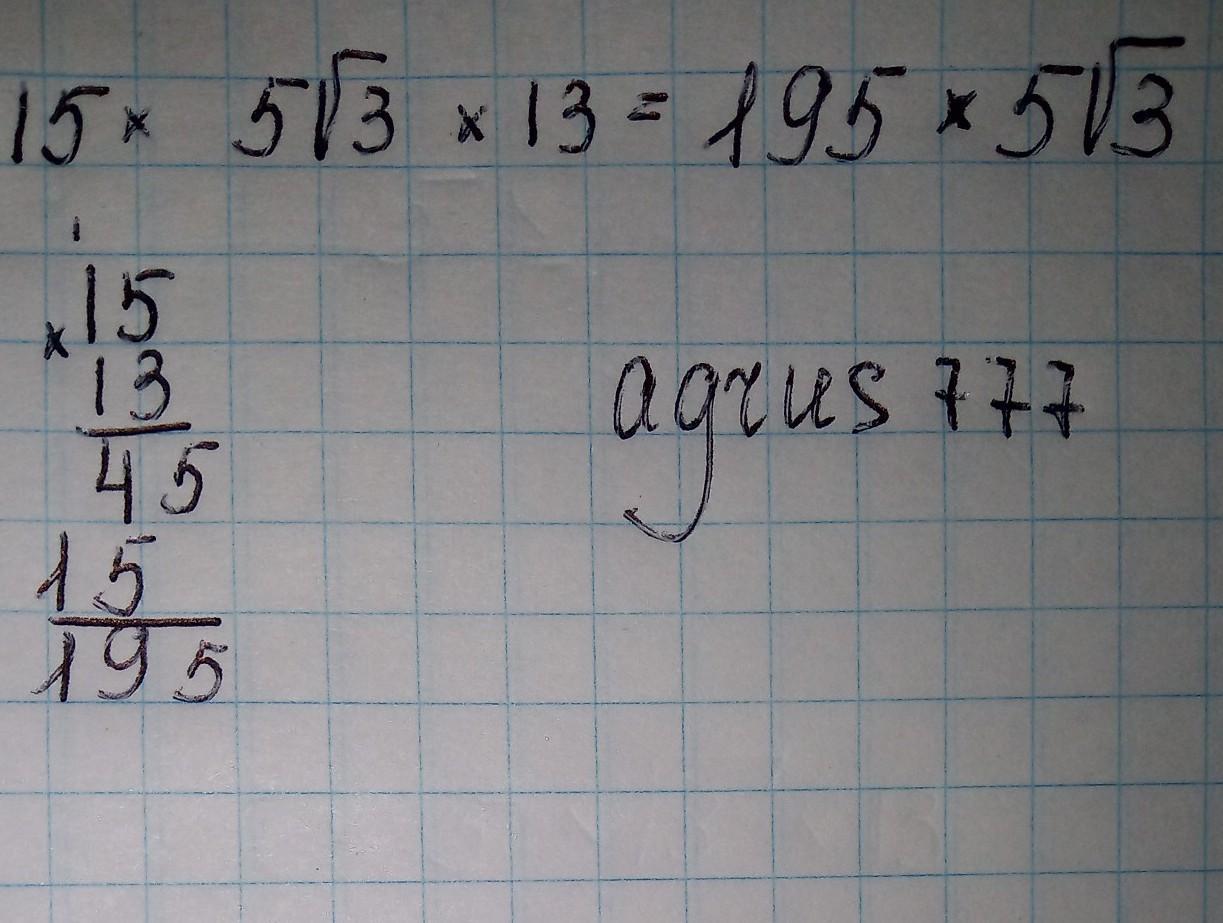 15 × 5√3 × 13 = 195 × 5√3
1
15
×
13
45
15
195
agrus 777